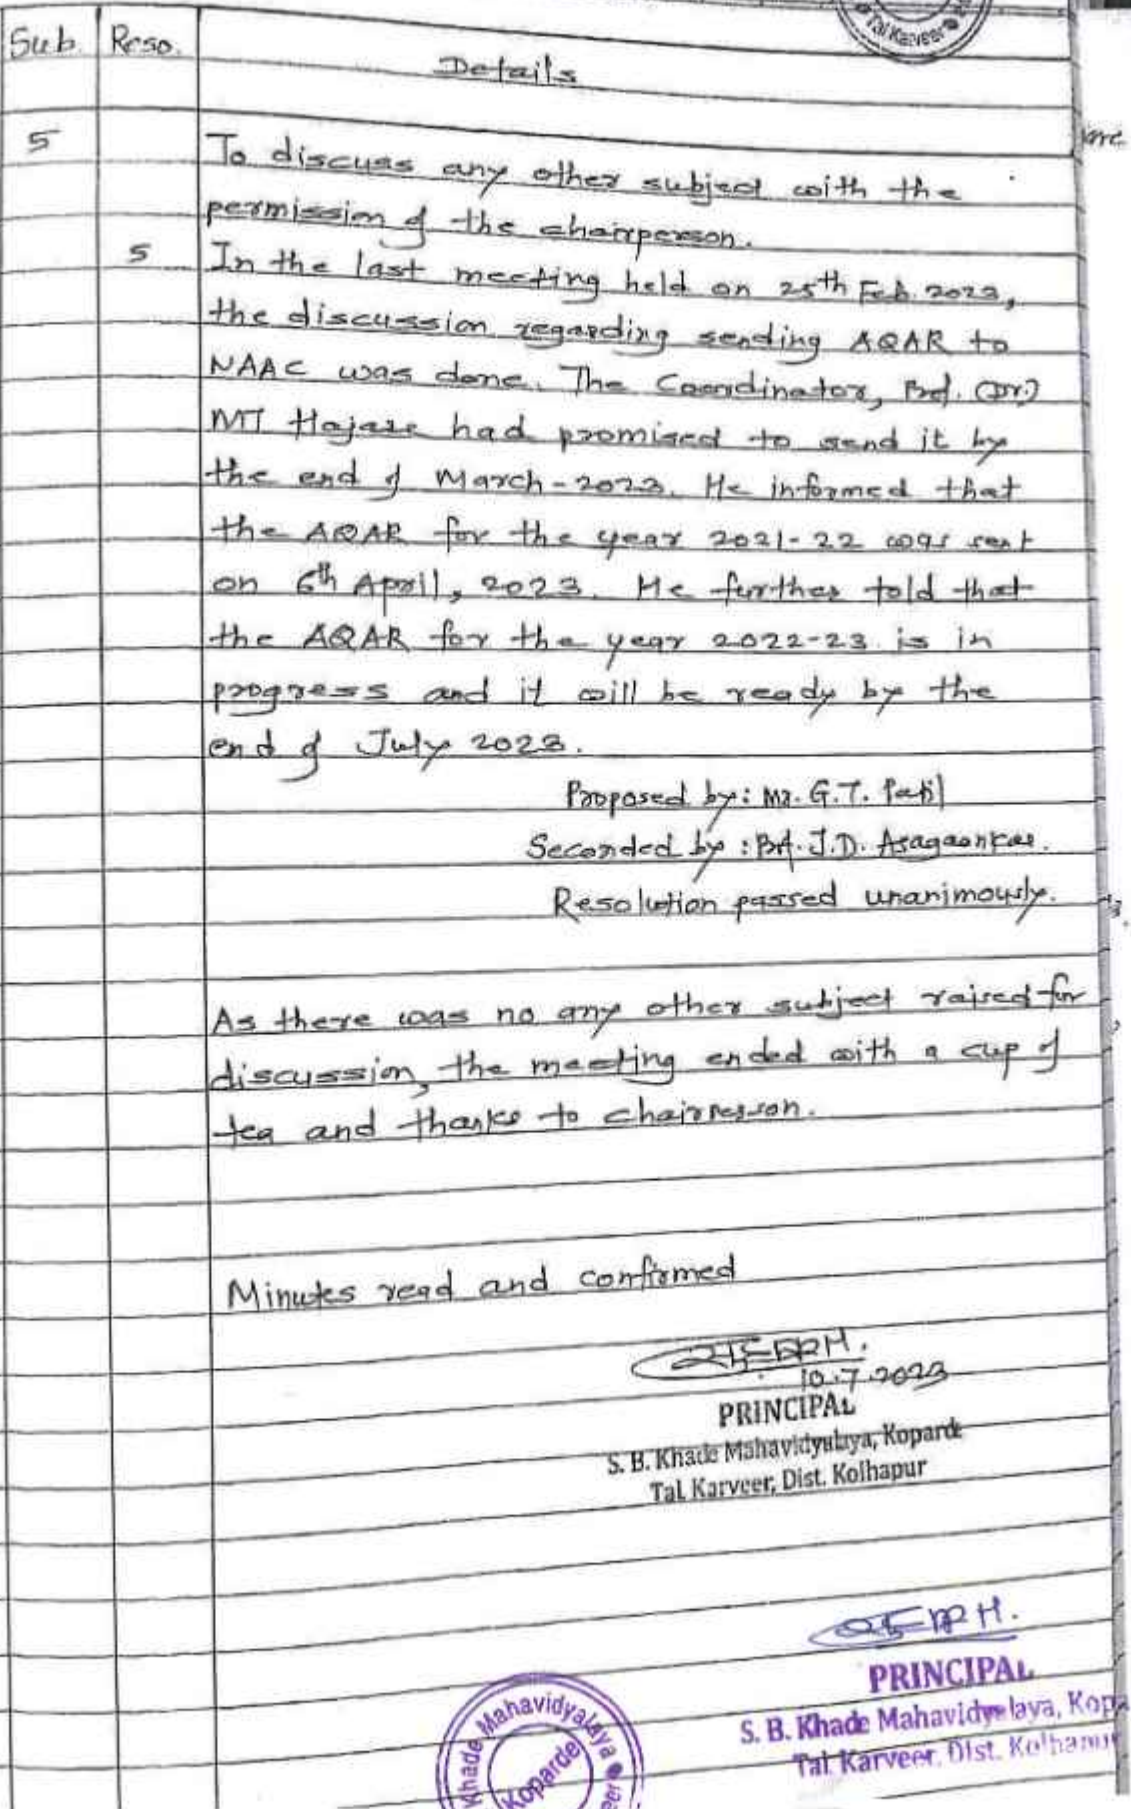 Tal Karveer
Sub. Reso. Details
5 To discuss any other subject with the
permission of the chairperson.
5 In the last meeting held on 25th Feb. 2023,
the discussion regarding sending AQAR to
NAAC was done. The Coordinator, Prof. (Dr.)
MT Hajare had promised to send it by
the end of March-2023. He informed that
the AQAR for the year 2021-22 was sent
on 6th April, 2023. He further told that
the AQAR for the year 2022-23 is in
progress and it will be ready by the
end of July 2023.
Proposed by: Mr. G.T. Patil
Seconded by : Prof. J.D. Asagaonkar.
Resolution passed unanimously.
As there was no any other subject raised for
discussion, the meeting ended with a cup of
tea and thanks to chairperson.
Minutes read and confirmed
10.7.2023
PRINCIPAL
S. B. Khade Mahavidyalaya, Koparde
Tal. Karveer, Dist. Kolhapur
PRINCIPAL
S. B. Khade Mahavidyalaya, Kopa
Tal. Karveer, Dist. Kolhapur
Khade Mahavidyalaya
Koparde